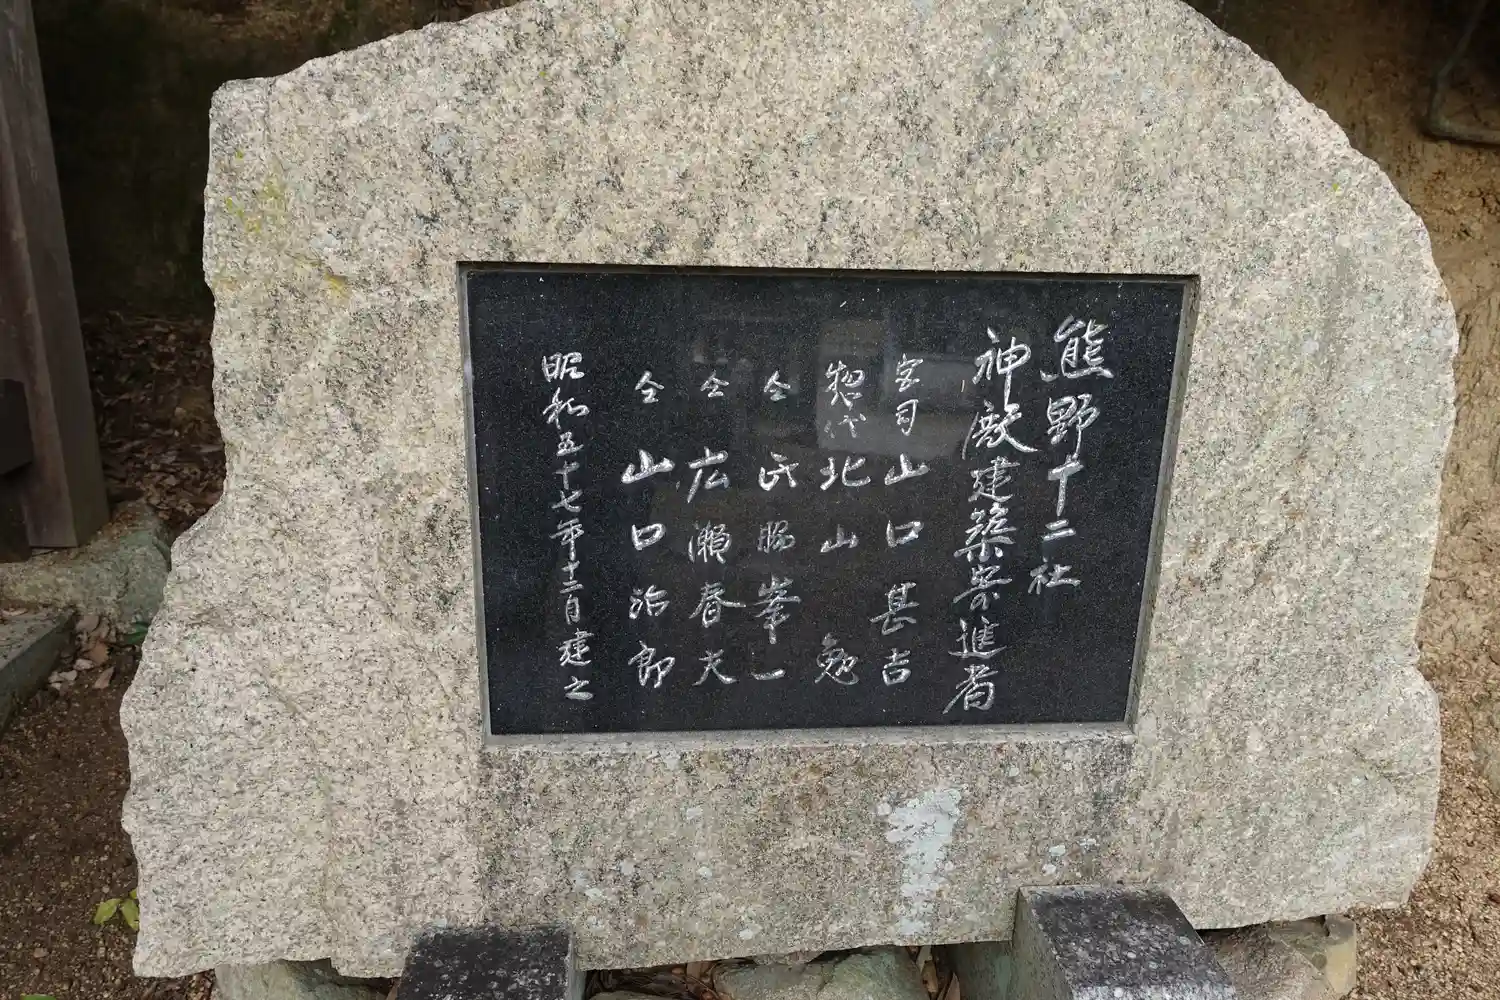 熊野十二社
神厩建築寄進者
宮司 山口甚吉
惣代 北山 勉
仝 氏 勝峯一
仝 広瀬春夫
仝 山口治郎
昭和五十七年十二月建之